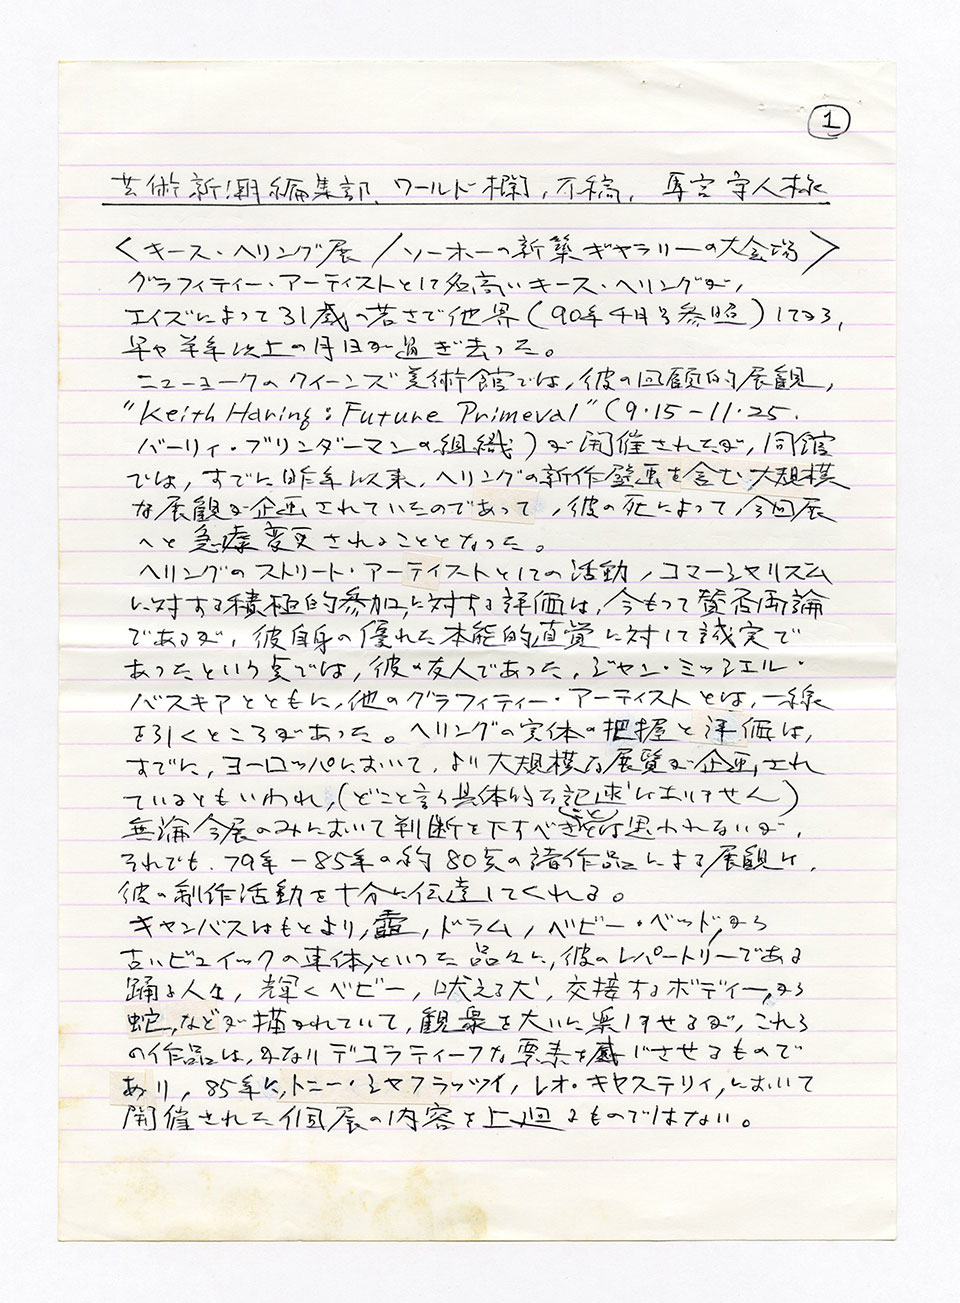 1
芸術新潮編集部、ワールド欄、下稿、馬宮守人様
〈キース・ヘリング展/ソーホーの新築ギャラリーの大会場〉
グラフィティー・アーティストとして名高いキース・ヘリングが、
エイズによって31歳の若さで他界(90年4月号参照)してから、
早や半年以上の月日が過ぎ去った。
ニューヨークのクイーンズ美術館では、彼の回顧的展観、
"Keith Haring: Future Primeval"(9・15-11・25.
バーリィ・ブリンダーマンの組織)が開催されたが、同館
では、すでに昨年以来、ヘリングの新作壁画を含む大規模
な展観が企画されていたのであって、彼の死によって今回展
へと急遽変更されることとなった。
ヘリングのストリート・アーティストとしての活動、コマーシャリズム
に対する積極的参加、に対する評価は、今もって賛否両論
であるが、彼自身の優れた本能的直覚に対して誠実で
あったという点では、彼の友人であった、ジャン・ミッシェル・
バスキアとともに、他のグラフィティー・アーティストとは、一線
を引くところがあった。ヘリングの実体の把握と評価は、
すでに、ヨーロッパにおいて、より大規模な展覧が企画され
ているともいわれ、(どこと言う具体的な記述はありません)
無論今展のみにおいて判断を下すべきことは思われないが、
それでも、79年-85年の約80点の諸作品による展観は、
彼の制作活動を十分に伝達してくれる。
キャンバスはもとより、壺、ドラム、ベビー・ベッド、から
古いビュイックの車体、といった品々に、彼のレパートリーである
踊る人生、輝くベビー、吠える犬、交接するボディー、から
蛇、などが描かれていて、観衆を大いに楽しませるが、これら
の作品は、かなりデコラティーフな要素を感じさせるもので
あり、85年に、トニー・シャフラッツイ、レオ・キャステリィ、において
開催された個展の内容を上廻るものではない。